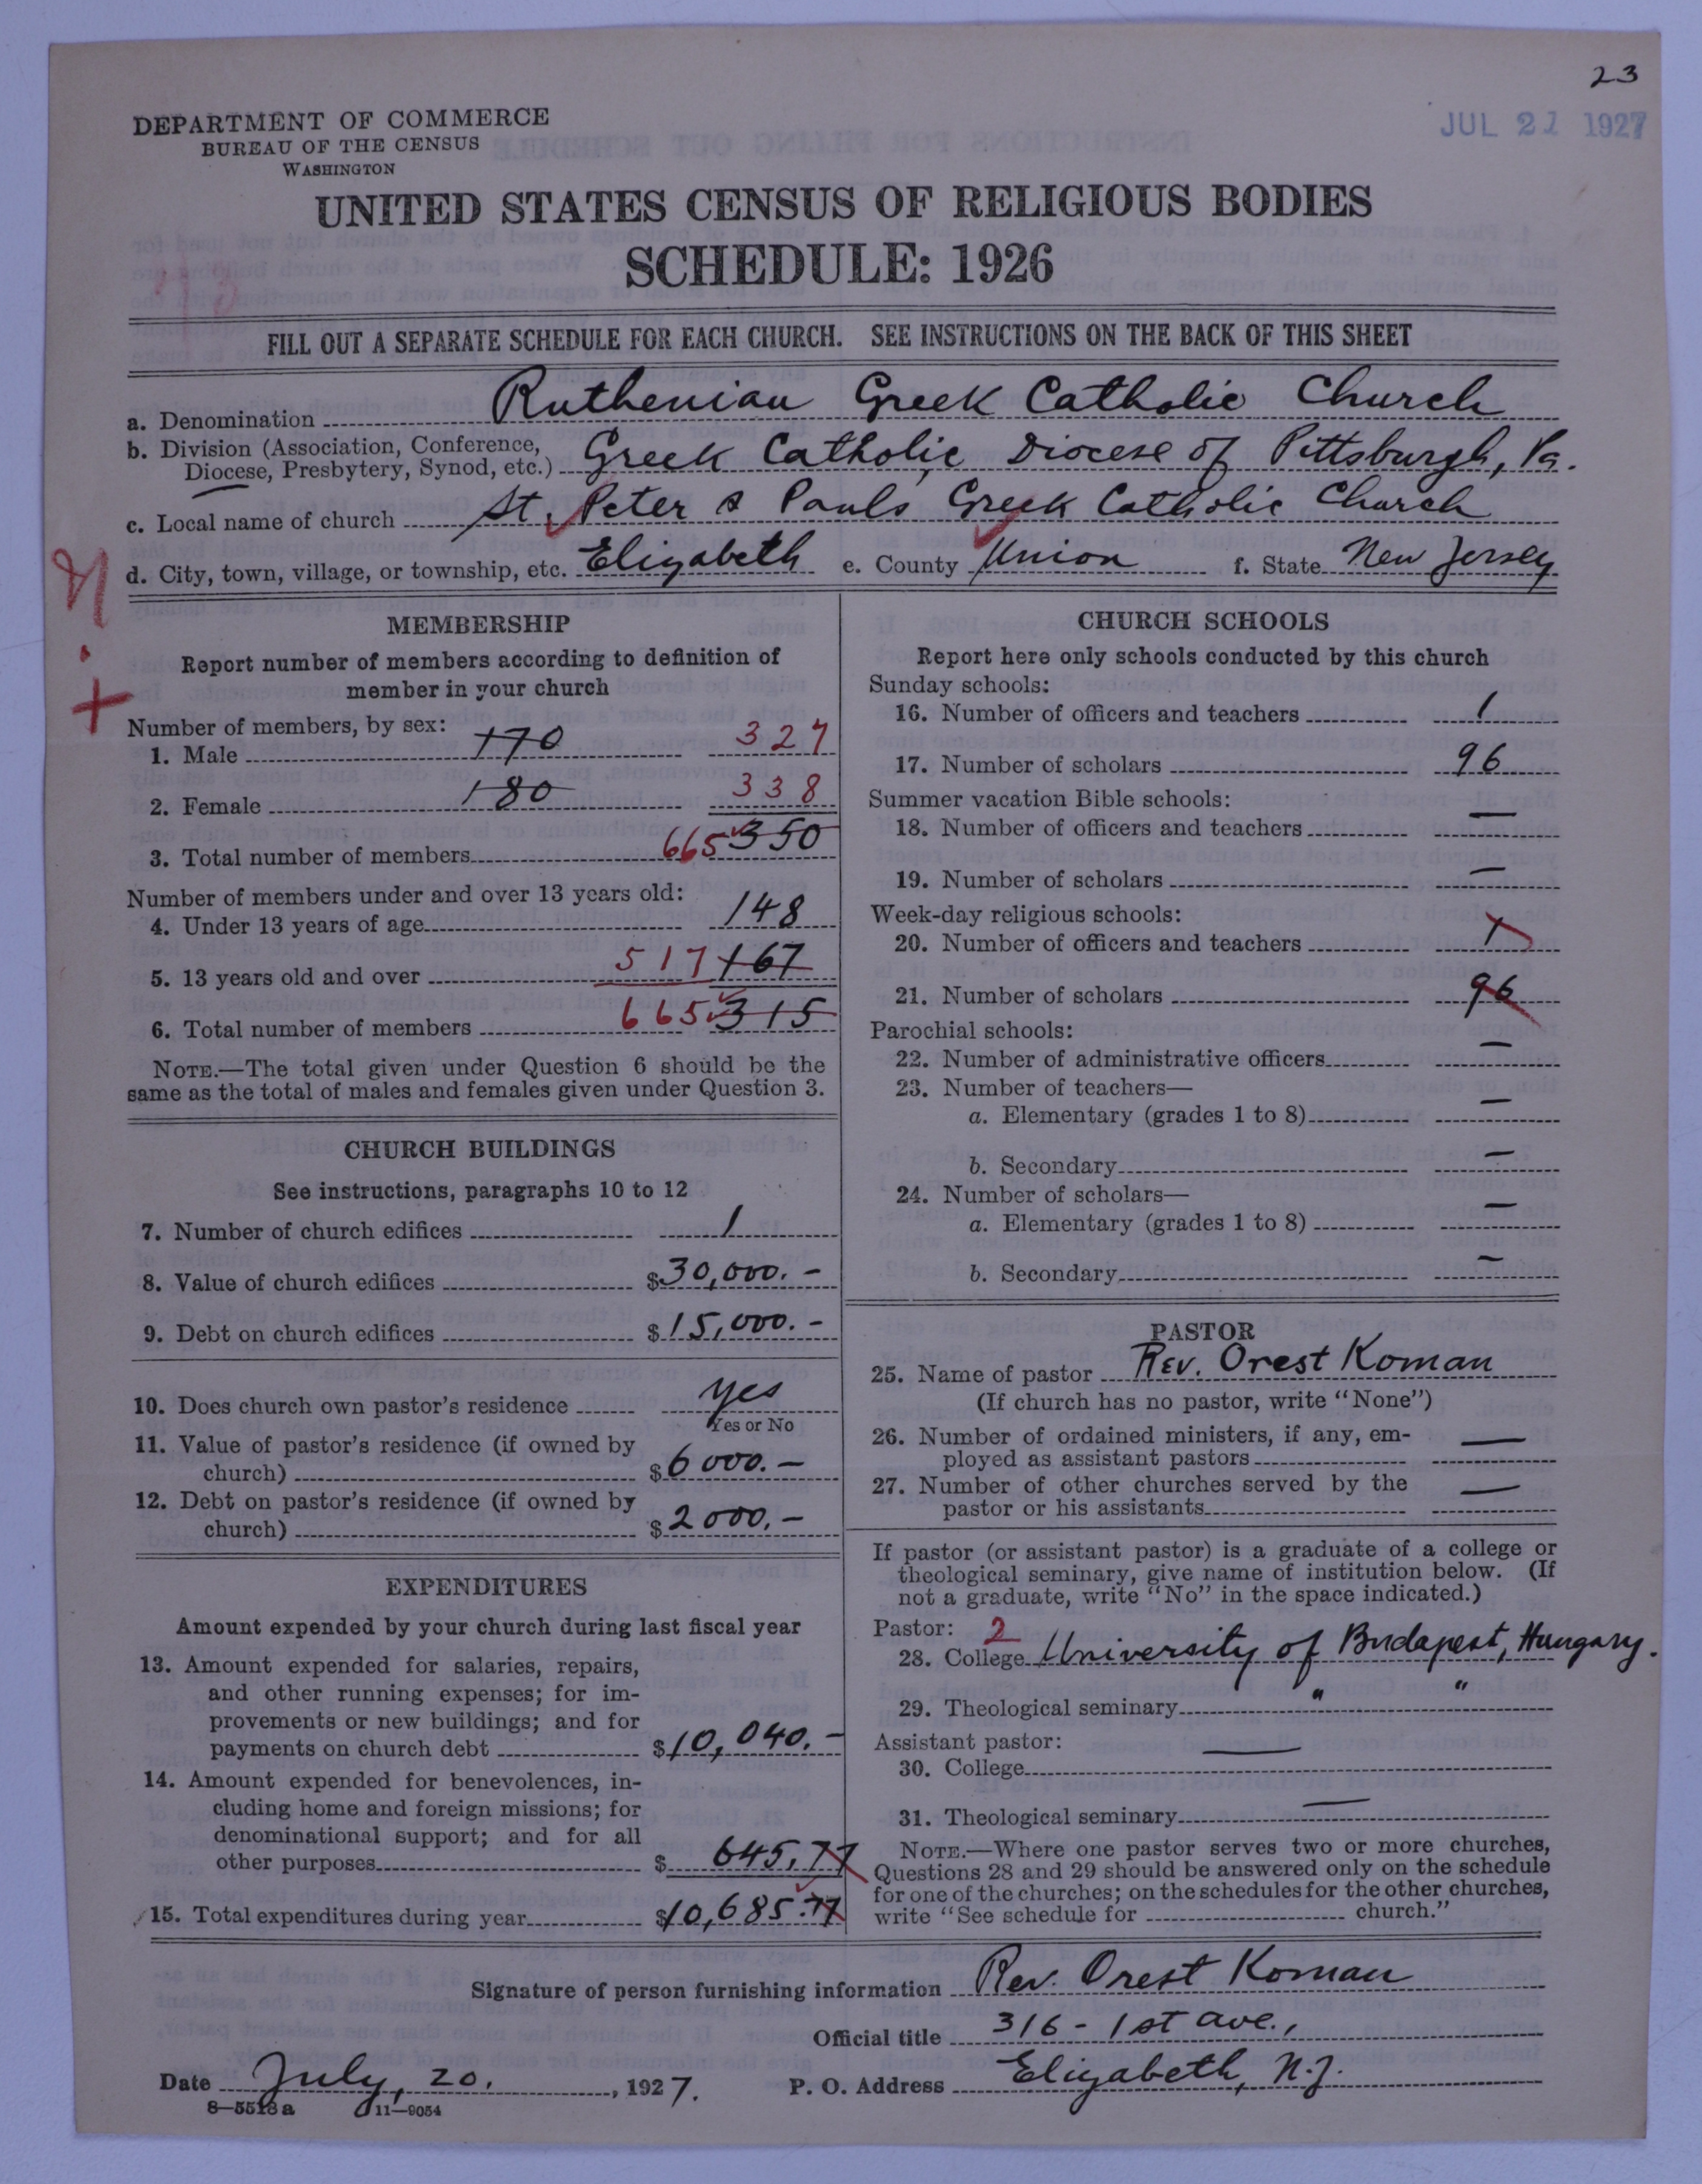 23
JUL 21 1927
DEPARTMENT OF COMMERCE
BUREAU OF THE CENSUS
WASHINGTON
UNITED STATES CENSUS OF RELIGIOUS BODIES
SCHEDULE: 1926
FILL OUT A SEPARATE SCHEDULE FOR EACH CHURCH. SEE INSTRUCTIONS ON THE BACK OF THIS SHEET
a. Denomination Ruthenian Greek Catholic Church
b. Division (Association, Conference,
Diocese, Presbytery, Synod, etc.) Greek Catholic Diocese of Pittsburgh, Pa.
c. Local name of church St. Peter & Pauls Greek Catholic Church
d. City, town, village, or township, etc. Elizabeth e. County Union f. State New Jersey
MEMBERSHIP
Report number of members according to definition of
member in your church
Number of members, by sex:
1. Male 170 327
2. Female 180 338
3. Total number of members 665 350
Number of members under and over 13 years old:
4. Under 13 years of age 148
5. 13 years old and over 517 167
6. Total number of members 665 315
NOTE.—The total given under Question 6 should be the
same as the total of males and females given under Question 3.
CHURCH BUILDINGS
See instructions, paragraphs 10 to 12
7. Number of church edifices 1
8. Value of church edifices $30,000.–
9. Debt on church edifices $15,000.–
10. Does church own pastor's residence yes
Yes or No
11. Value of pastor's residence (if owned by
church) $6000.–
12. Debt on pastor's residence (if owned by
church) $2000.–
EXPENDITURES
Amount expended by your church during last fiscal year
13. Amount expended for salaries, repairs,
and other running expenses; for im-
provements or new buildings; and for
payments on church debt $10,040.–
14. Amount expended for benevolences, in-
cluding home and foreign missions; for
denominational support; and for all
other purposes $645,77
15. Total expenditures during year $10,685.77
CHURCH SCHOOLS
Report here only schools conducted by this church
Sunday schools:
16. Number of officers and teachers 1
17. Number of scholars 96
Summer vacation Bible schools:
18. Number of officers and teachers —
19. Number of scholars —
Week-day religious schools:
20. Number of officers and teachers 1
21. Number of scholars 96
Parochial schools:
22. Number of administrative officers —
23. Number of teachers—
a. Elementary (grades 1 to 8) —
b. Secondary —
24. Number of scholars—
a. Elementary (grades 1 to 8) —
b. Secondary —
PASTOR
25. Name of pastor Rev. Orest Koman
(If church has no pastor, write "None")
26. Number of ordained ministers, if any, em-
ployed as assistant pastors —
27. Number of other churches served by the
pastor or his assistants —
If pastor (or assistant pastor) is a graduate of a college or
theological seminary, give name of institution below. (If
not a graduate, write "No" in the space indicated.)
Pastor: 2
28. College University of Budapest, Hungary.
29. Theological seminary " "
Assistant pastor:
30. College —
31. Theological seminary —
NOTE.—Where one pastor serves two or more churches,
Questions 28 and 29 should be answered only on the schedule
for one of the churches; on the schedules for the other churches,
write "See schedule for church."
Signature of person furnishing information Rev. Orest Koman
Official title 316 - 1st ave.,
Date July, 20. , 1927. P. O. Address Elizabeth, N.J.
8—5513a 11—9054